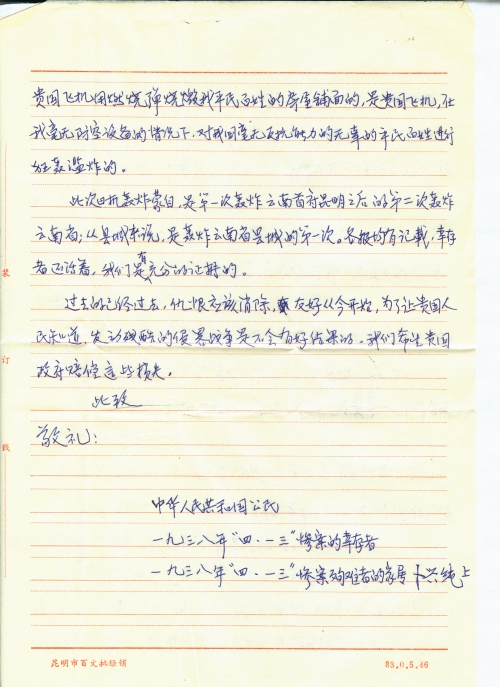 贵国飞机用燃烧弹烧毁我平民百姓的房屋铺面的,是贵国飞机,在
我毫无防空设备的情况下,对我国毫无反抗能力的无辜的平民百姓进行
狂轰滥炸的。
此次日机轰炸蒙自,是第一次轰炸云南首府昆明之后的第二次轰炸
云南省;从县城来说,是轰炸云南省县城的第一次。各报均有记载,幸存
者还活着,我们是有充分的证据的。
过去的已经过去,仇恨应该消除,友好从今开始,为了让贵国人
民知道,发动残酷的侵略战争是不会有好结果的。我们希望贵国
政府赔偿这些损失。
此致
敬礼:
中华人民共和国公民
一九三八年“四·一三”惨案的幸存者
一九三八年“四·一三”惨案殉难者的家属 卜兴纯上
装
订
线
昆明市百文批经销
83.0.5.46